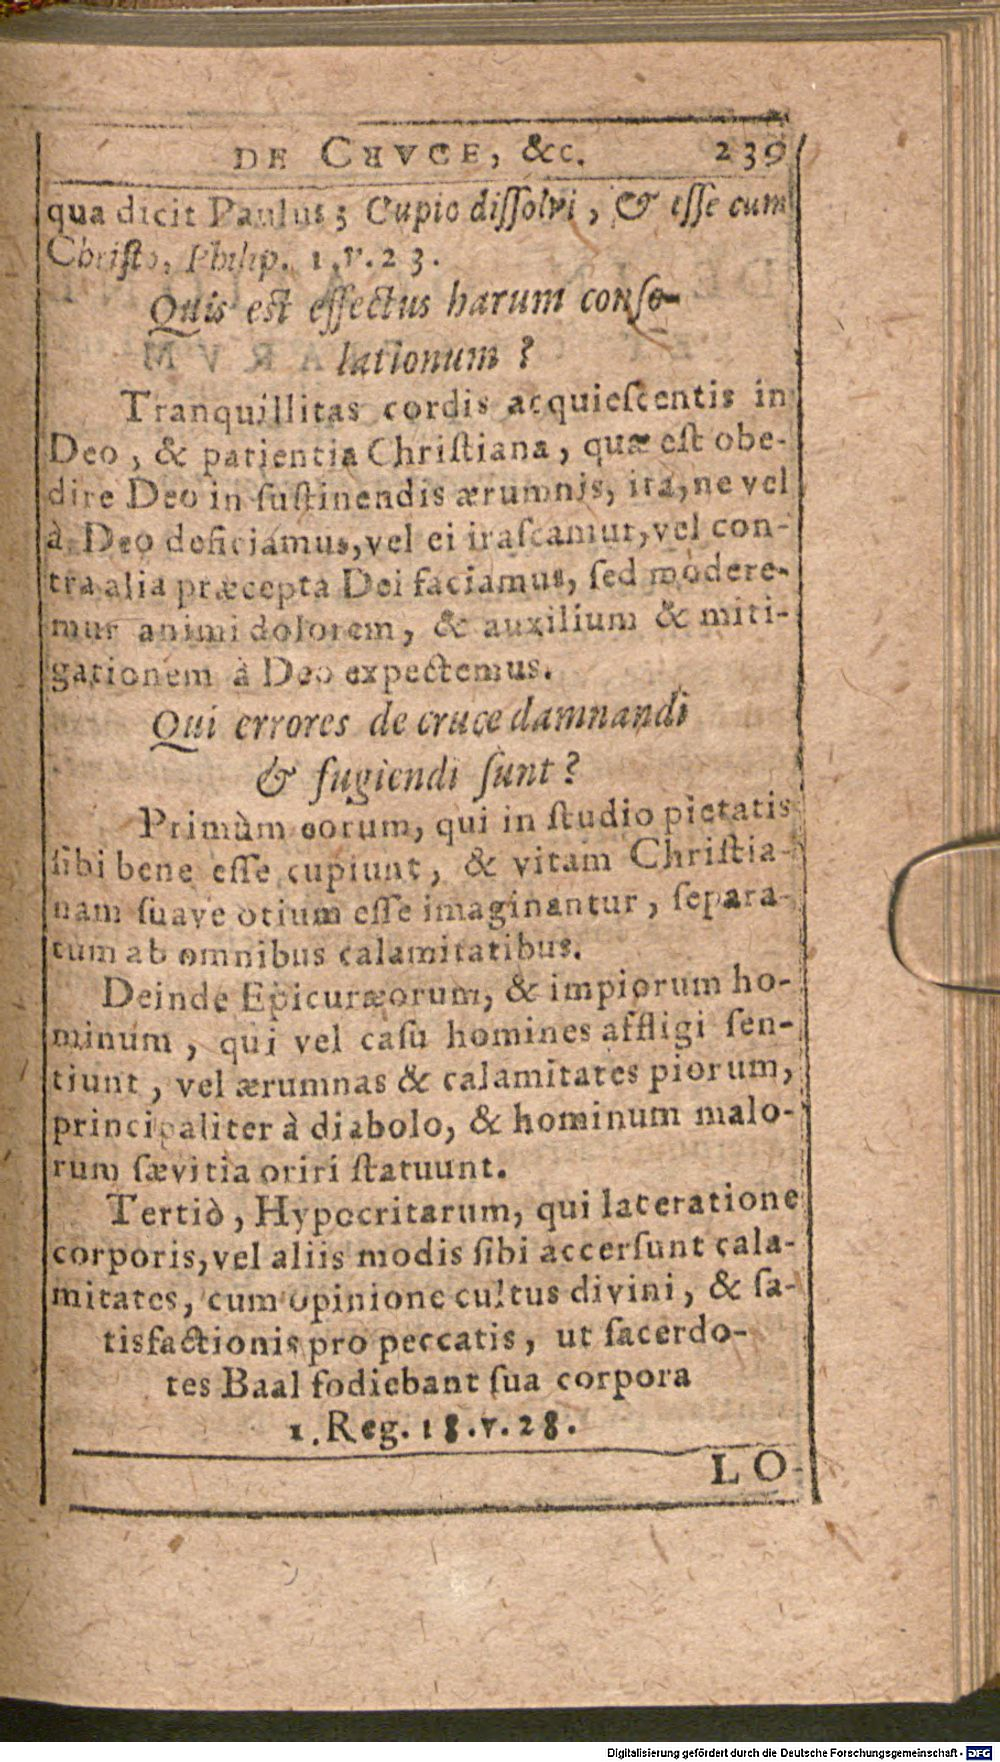 DE CRVCE, &c. 239
qua dicit Paulus; Cupio diſſolvi, & eſſe cum
Chriſto, Philip. 1. v. 23.
Quis est effectus harum conſo-
lationum?
Tranquillitas cordis acquieſcentis in
Deo, & patientia Chriſtiana, quæ eſt obe-
dire Deo in ſuſtinendis ærumnis, ita, ne vel
à Deo deficiamus, vel ei iraſcamur, vel con-
tra alia præcepta Dei faciamus, ſed modere-
mur animi dolorem, & auxilium & miti-
gationem à Deo expectemus.
Qui errores de cruce damnandi
& fugiendi ſunt?
Primùm eorum, qui in ſtudio pietatis
ſibi bene eſſe cupiunt, & vitam Chriſtia-
nam ſuave otium eſſe imaginantur, ſepara-
tum ab omnibus calamitatibus.
Deinde Epicuræorum, & impiorum ho-
minum, qui vel caſu homines affligi ſen-
tiunt, vel ærumnas & calamitates piorum,
principaliter à diabolo, & hominum malo-
rum ſævitia oriri ſtatuunt.
Tertiò, Hypocritarum, qui laceratione
corporis, vel aliis modis ſibi accerſunt cala-
mitates, cum opinione cultus divini, & ſa-
tisfactionis pro peccatis, ut ſacerdo-
tes Baal fodiebant ſua corpora
1. Reg. 18. v. 28.
LO-
Digitalisierung gefördert durch die Deutsche Forschungsgemeinschaft - DFG